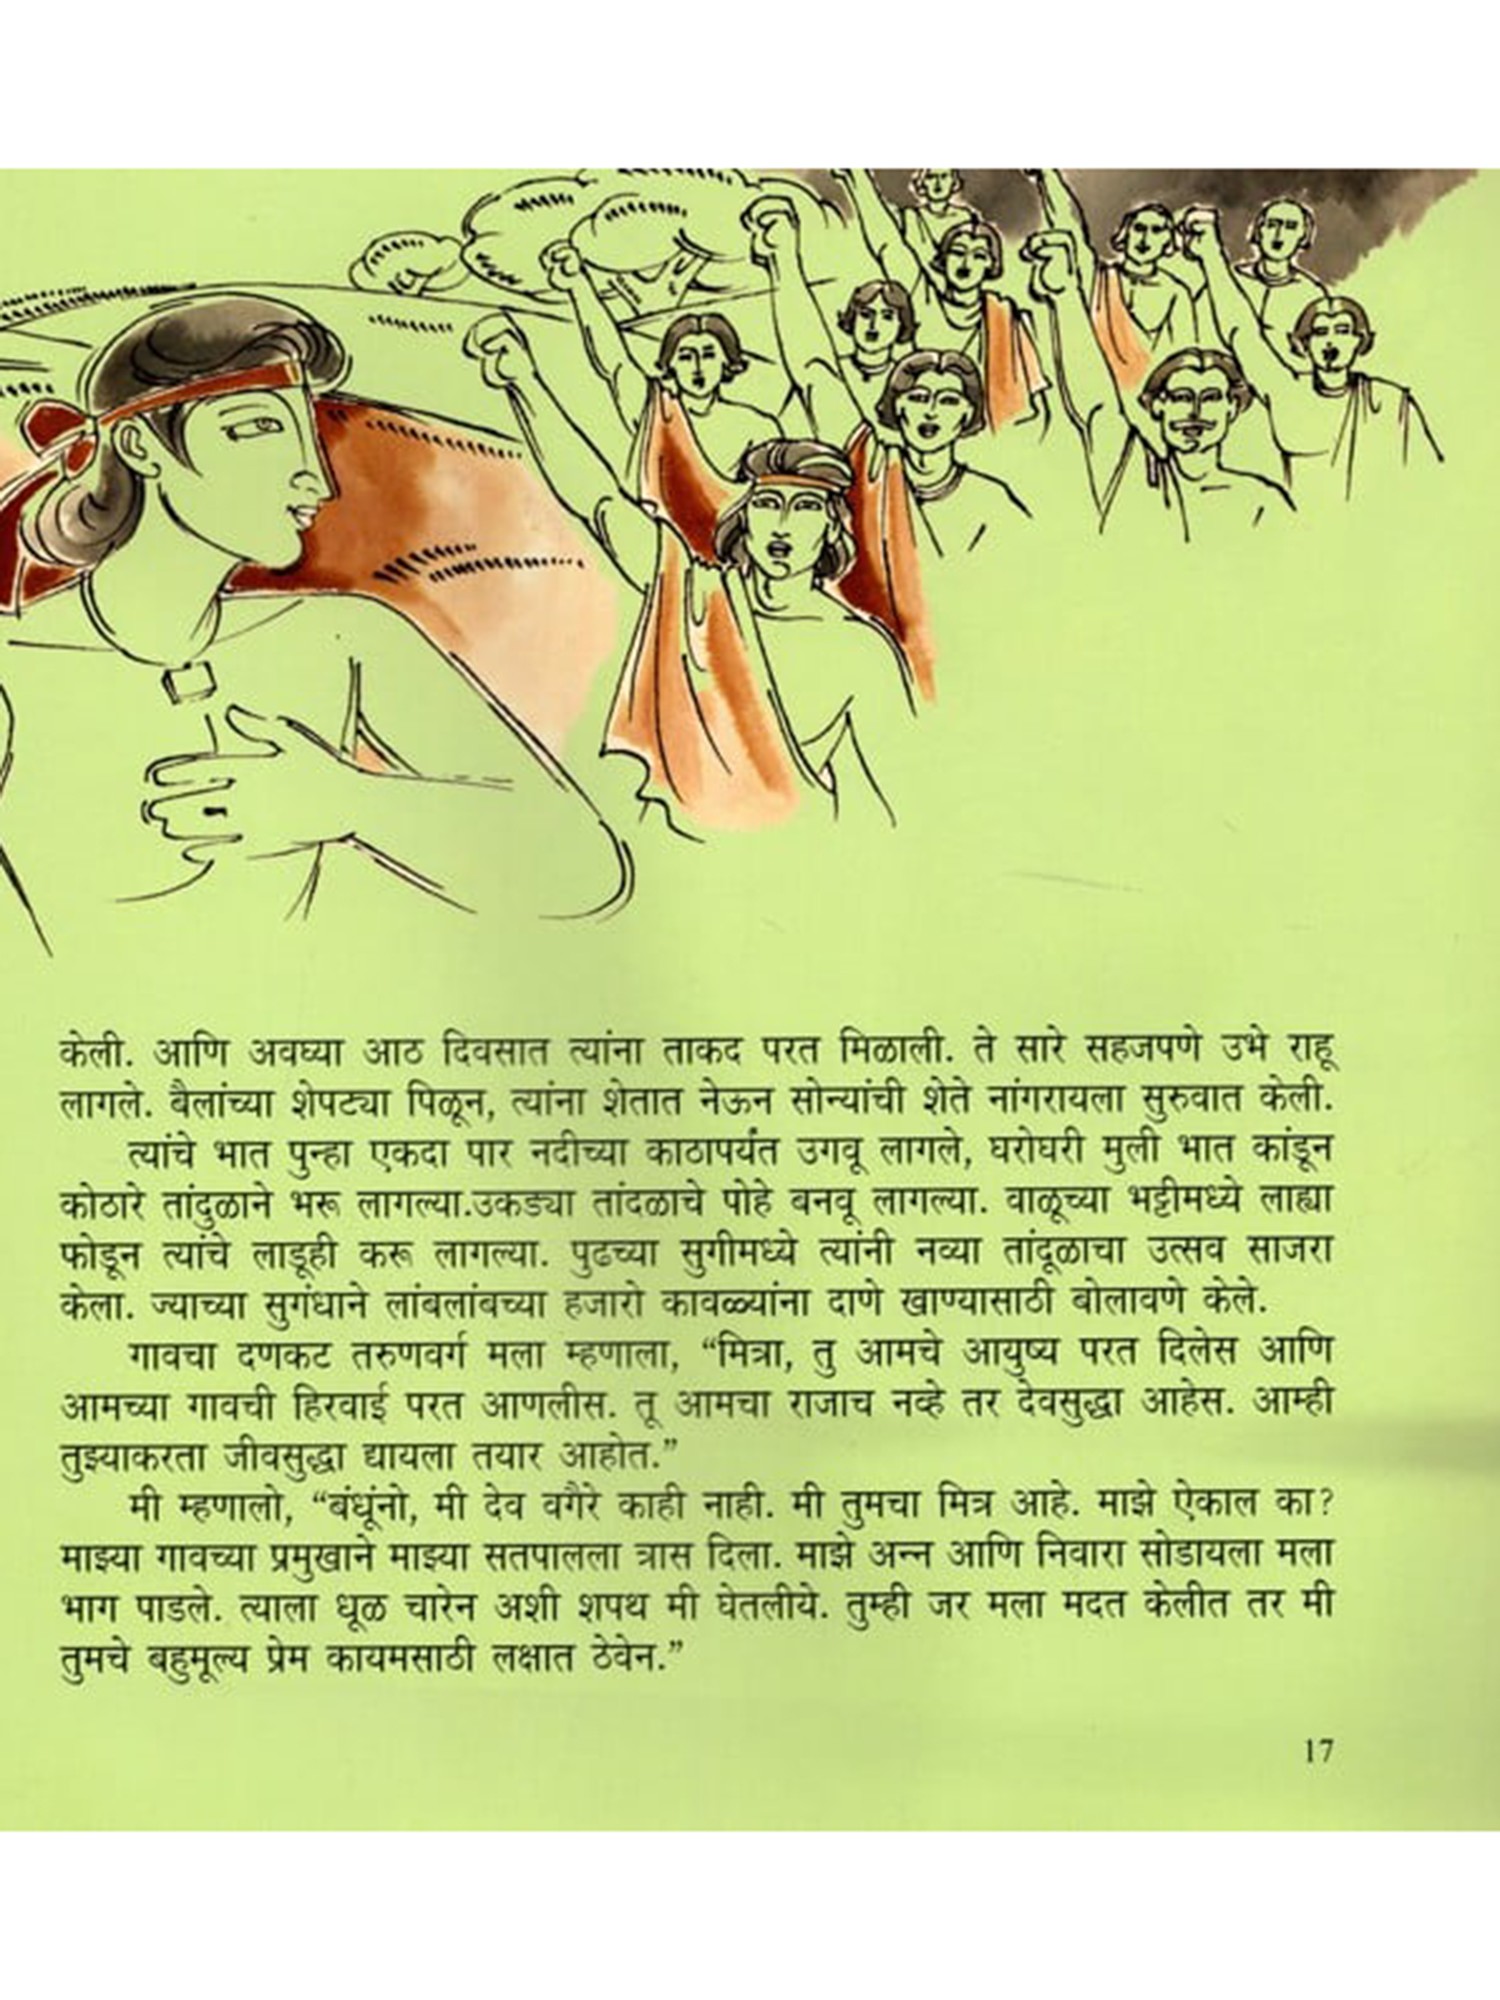 केली. आणि अवघ्या आठ दिवसात त्यांना ताकद परत मिळाली. ते सारे सहजपणे उभे राहू
लागले. बैलांच्या शेपट्या पिळून, त्यांना शेतात नेऊन सोन्यांची शेते नांगरायला सुरुवात केली.
त्यांचे भात पुन्हा एकदा पार नदीच्या काठापर्यंत उगवू लागले, घरोघरी मुली भात कांडून
कोठारे तांदुळाने भरू लागल्या.उकड्या तांदळाचे पोहे बनवू लागल्या. वाळूच्या भट्टीमध्ये लाह्या
फोडून त्यांचे लाडूही करू लागल्या. पुढच्या सुगीमध्ये त्यांनी नव्या तांदूळाचा उत्सव साजरा
केला. ज्याच्या सुगंधाने लांबलांबच्या हजारो कावळ्यांना दाणे खाण्यासाठी बोलावणे केले.
गावचा दणकट तरुणवर्ग मला म्हणाला, “मित्रा, तु आमचे आयुष्य परत दिलेस आणि
आमच्या गावची हिरवाई परत आणलीस. तू आमचा राजाच नव्हे तर देवसुद्धा आहेस. आम्ही
तुझ्याकरता जीवसुद्धा द्यायला तयार आहोत.”
मी म्हणालो, “बंधूंनो, मी देव वगैरे काही नाही. मी तुमचा मित्र आहे. माझे ऐकाल का?
माझ्या गावच्या प्रमुखाने माझ्या सतपालला त्रास दिला. माझे अन्न आणि निवारा सोडायला मला
भाग पाडले. त्याला धूळ चारेन अशी शपथ मी घेतलीये. तुम्ही जर मला मदत केलीत तर मी
तुमचे बहुमूल्य प्रेम कायमसाठी लक्षात ठेवेन.”
17